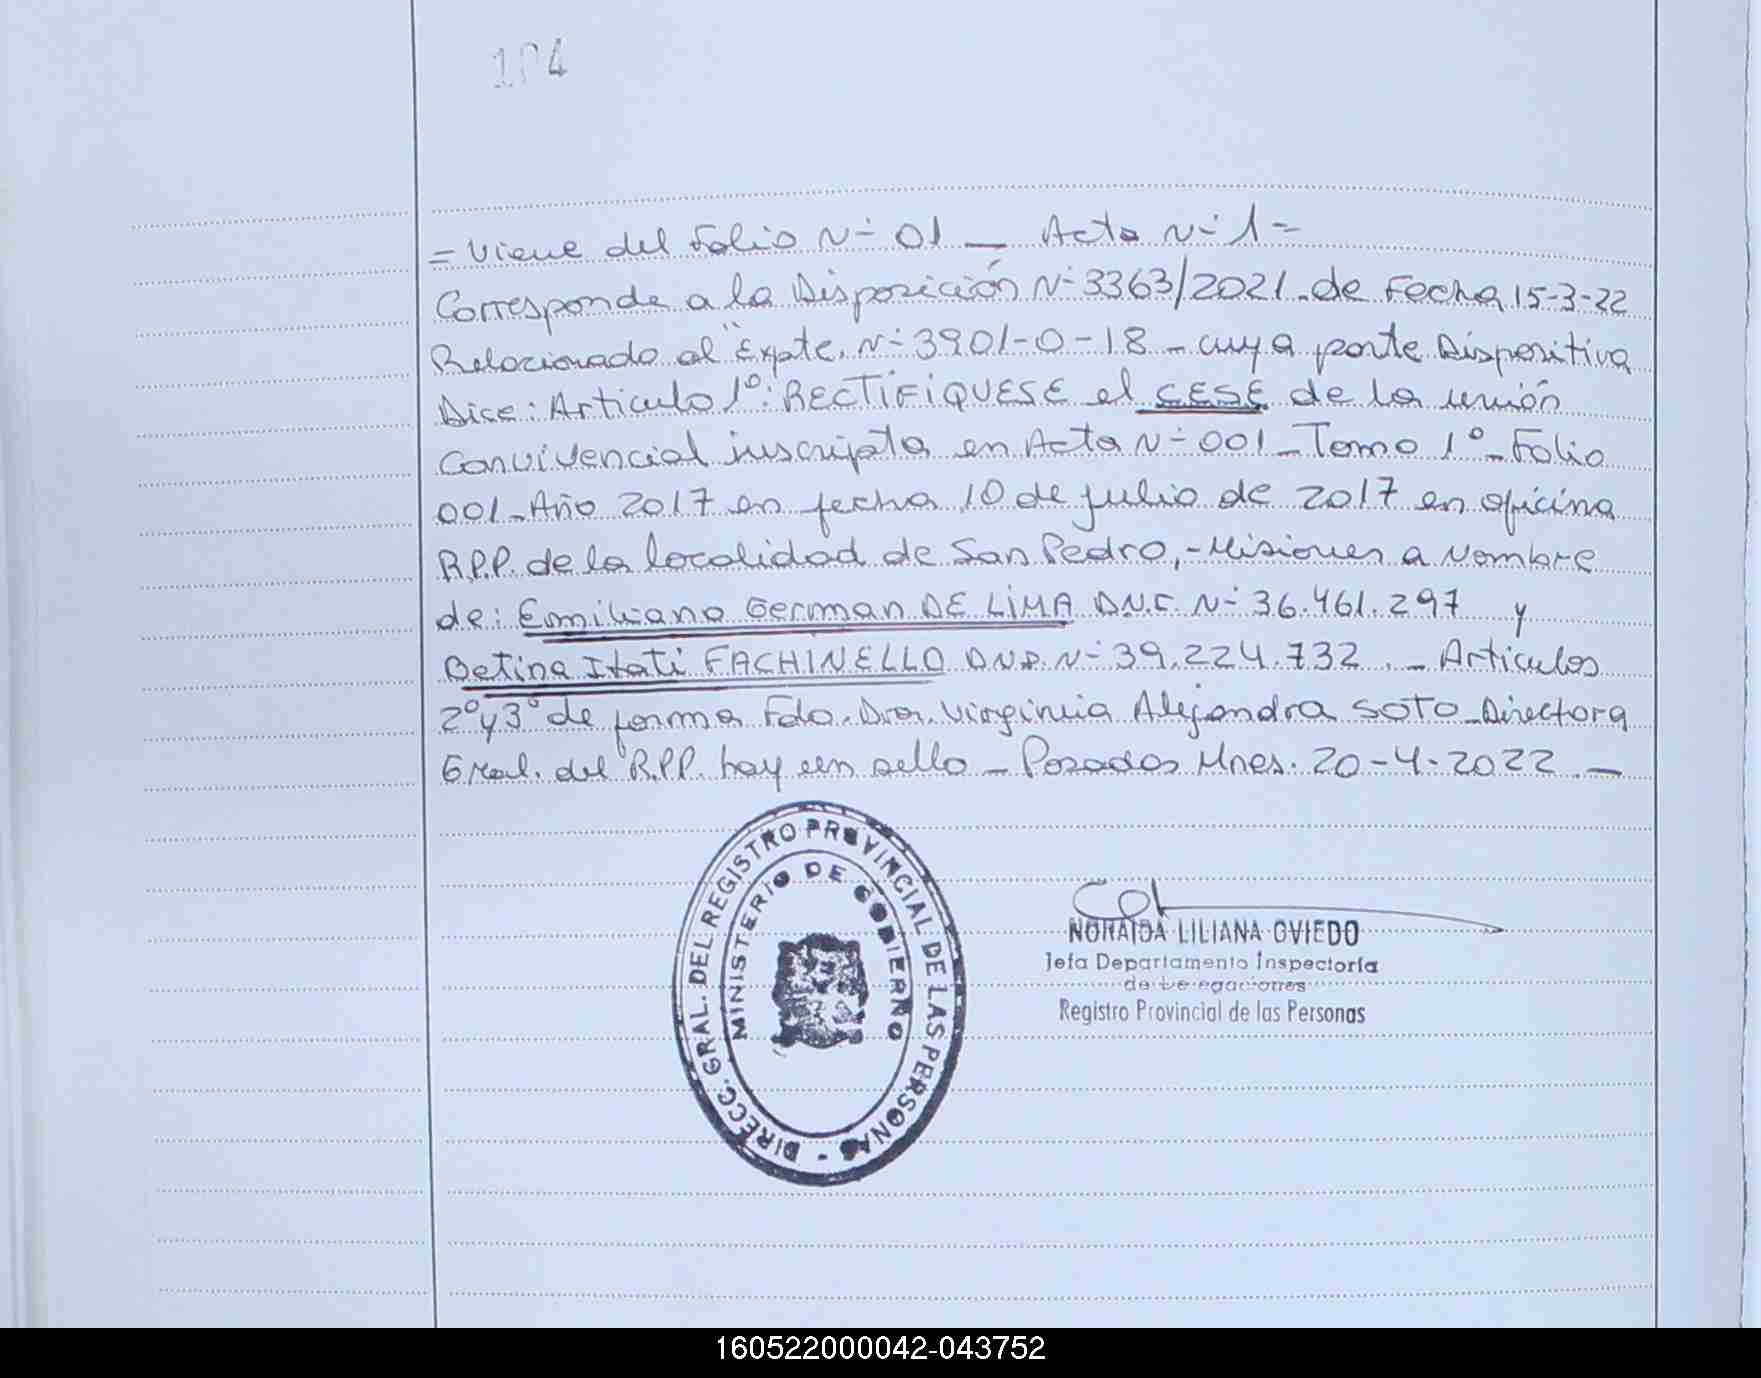 104
= Viene del Folio N° 01 _ Acta N° 1 =
Corresponde a la Disposición N° 3363/2021. de Fecha 15-3-22
Relacionado al Expte. N° 3901-0-18 - cuya parte Dispositiva
Dice: Articulo 1°: RECTIFIQUESE el CESE de la unión
Convivencial inscripta en Acta N° 001 - Tomo 1° - Folio
001 - Año 2017 en fecha 10 de julio de 2017 en oficina
R.P.P. de la localidad de San Pedro, - Misiones a Nombre
de: Emiliano German DE LIMA D.N.I. N° 36.461.297 y
Betina Itati FACHINELLO D.N.I. N° 39.224.732. _ Articulos
2° y 3° de forma Fdo. Dra. Virginia Alejandra SOTO - Directora
Gral. del R.P.P. hay un sello - Posadas Mnes. 20-4-2022. _
DIRECC. GRAL. DEL REGISTRO PROVINCIAL DE LAS PERSONAS -
MINISTERIO DE GOBIERNO
NORAIDA LILIANA OVIEDO
Jefa Departamento Inspectoría
de Delegaciones
Registro Provincial de las Personas
160522000042-043752